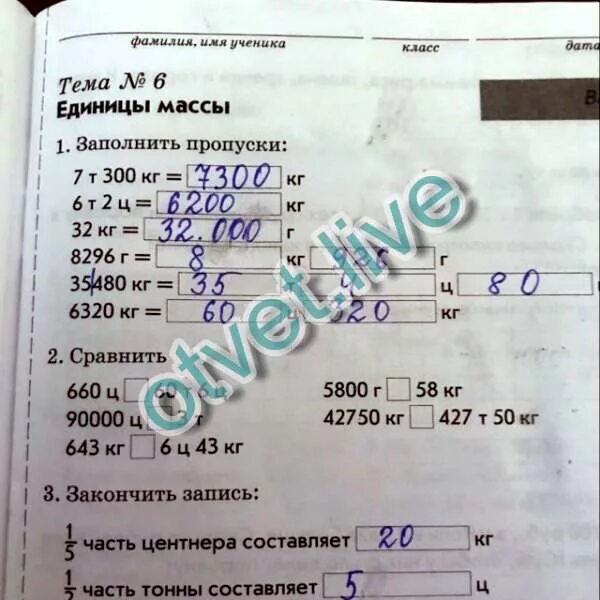 фамилия, имя ученика класс дата
Тема № 6
Единицы массы
1. Заполнить пропуски:
7 т 300 кг = 7300 кг
6 т 2 ц = 6200 кг
32 кг = 32.000 г
8296 г = 8 кг г
35480 кг = 35 ц 80
6320 кг = 60 ц 320 кг
2. Сравнить
660 ц 5800 г 58 кг
90000 ц т 42750 кг 427 т 50 кг
643 кг 6 ц 43 кг
3. Закончить запись:
1/5 часть центнера составляет 20 кг
1/2 часть тонны составляет 5 ц
otvet.live